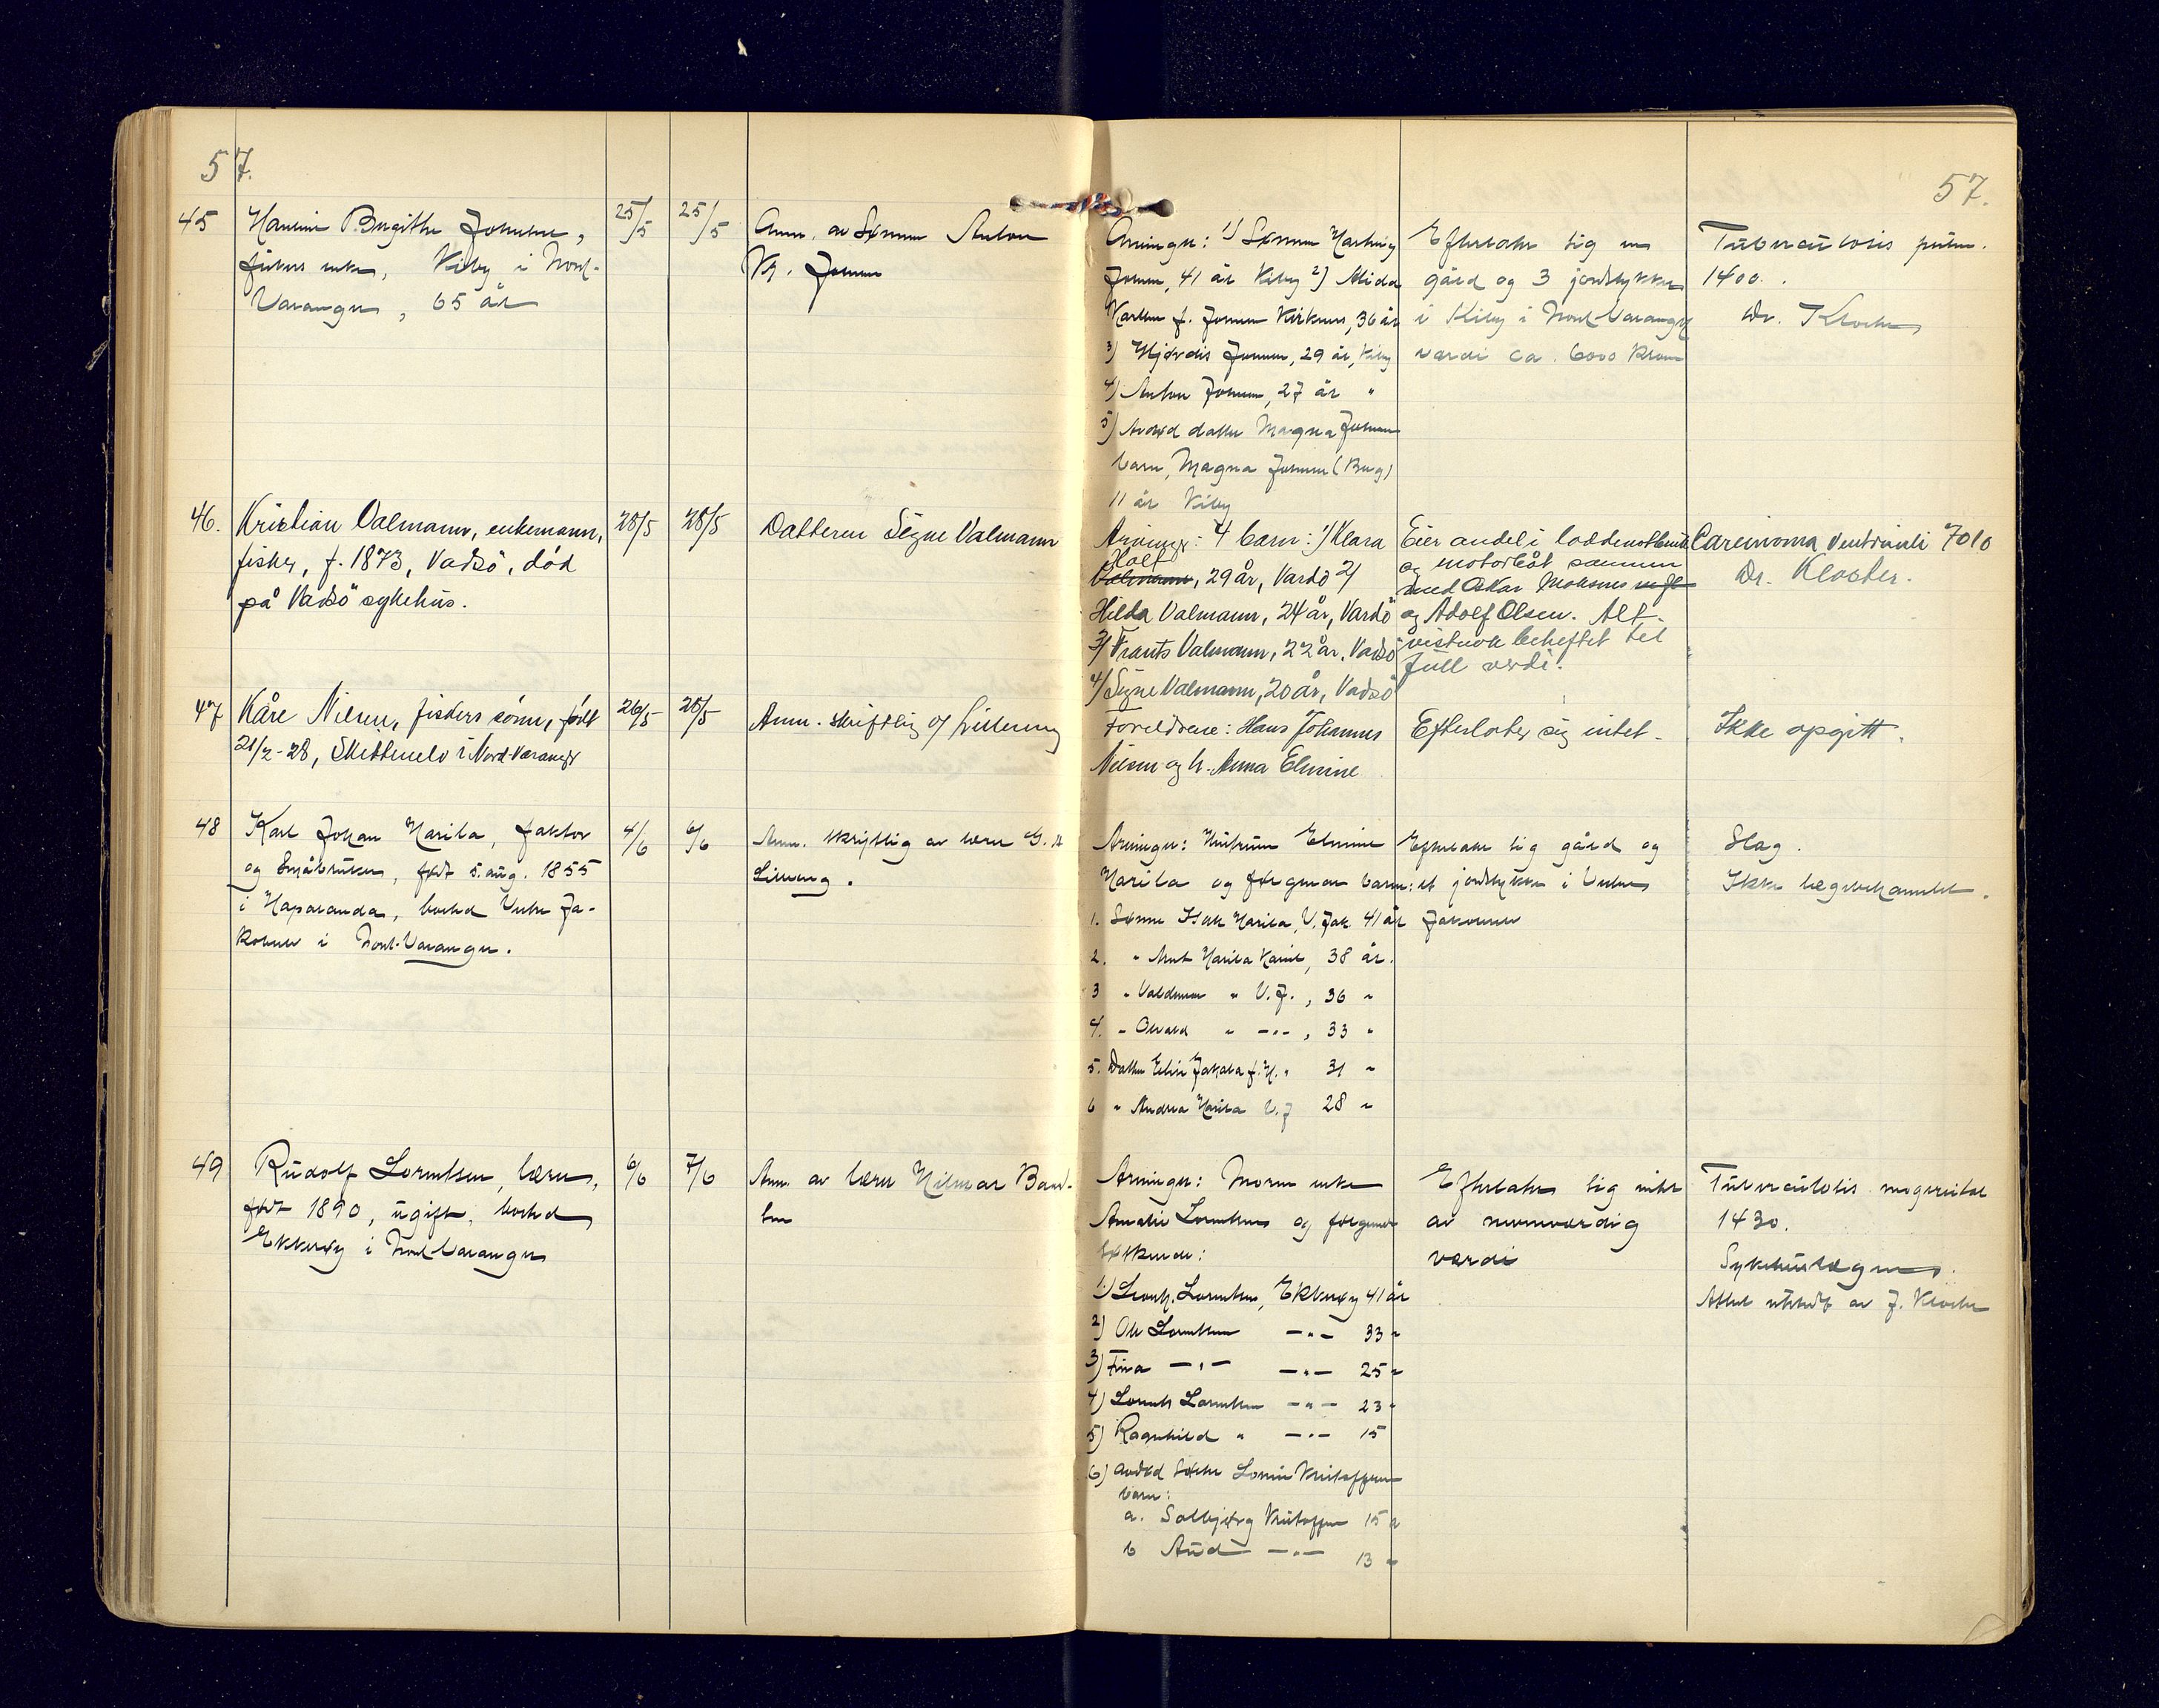 57.
57.
45
Birgithe Johnsen,
fiskers enke, Kiby i Nord-
Varanger, 65 år
25/5
25/5
Anm. av Sønnen Anton
Johnsen
Arvinger: 1) Sønnen
Johnsen, 41 år Kiby 2) Alida
f. Johnsen Kirkenes, 36 år
3) Hjørdis Johnsen, 29 år, Kiby
4) Anton Johnsen, 27 år "
5) Avdød datter Magna Johnsens
barn, Magna Johnsen (Berg)
11 år Kiby
Efterlater sig en
gård og 3 jordstykker
i Kiby i Nord-Varanger
verdi ca. 6000 kroner
Tuberculosis pulm.
1400.
Dr. Kloster
46.
Kristian Valmann, enkemann,
fisker, f. 1873, Vadsö, død
på Vadsö sykehus.
28/5
28/5
Datteren Signe Valmann
Arvinger: 4 barn: 1/ Klara
Holt
Valmann, 29 år, Vardö 2/
Hilda Valmann, 24 år, Vardö
3/ Frants Valmann, 22 år, Vadsö
4/ Signe Valmann, 20 år, Vadsö
Eier andel i loddenotbruk
og motorbåt sammen
med Oskar
og Adolf Olsen. Alt
vistnok beheftet til
full verdi.
Carcinoma Ventriculi 7010
Dr. Kloster.
47
Kåre Nilsen, fiskers sønn, født
21/2-28, Skettenelv i Nord-Varanger
26/5
28/5
Anm. skriftlig
Foreldrene: Hans Johannes
Nilsen og h. Anna Elmine
Efterlater sig intet.
Ikke opgitt.
48
Karl Johan Harila, faktor
og Småbruker, født 5. aug. 1855
i Haparanda, bosted Vestre Ja-
kobselv i Nord-Varanger.
4/6
6/6
Anm. skriftlig av lærer
Arvinger: Hustruen Elmine
Harila og følgende barn:
1. Sønn Isak Harila, V. Jak. 41 år
2. " Harila 38 år.
3 " Valdemar " V. J., 36 "
4. " Osvald " -"- , 33 "
5. Datter Elise f. H. " 31 "
6 " Andrea Harila V. J 28 "
Efterlater sig gård og
et jordstykke i Vestre
Jakobselv
Slag.
Ikke lægebehandlet.
49
Rudolf Lorentsen, lærer,
født 1890, ugift, bosted
Ekkerøy i Nord-Varanger
6/6
7/6
Anm. av lærer Hilmar
Arvinger: Moren enke
Amalie Lorentsen og følgende
Søskende:
1.) Lorentsen, Ekkerøy 41 år
2) Ole Lorentsen -"- 33 "
3) Fina -"- -"- 25 "
4) Lorents Lorentsen -"- 23 "
5) Ragnhild " -"- 15
6) avdød Søster Kristoffersens
barn:
a. Solbjørg Kristoffersen 15 "
b Aud -"- 13 "
Efterlater sig intet
av nevneverdig
værdi
Tuberculosis
1430.
Sykehuslægen.
Attest utstedt av J. Kloster